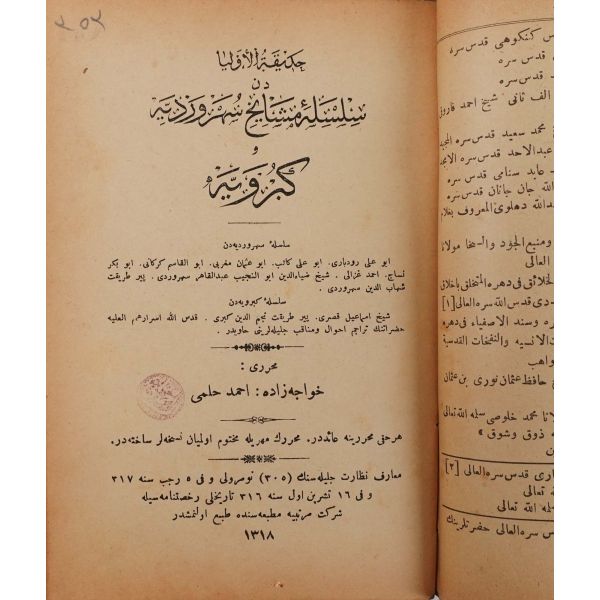 ٢٥٢
حديقة الأوليا
دن
سلسلۀ مشايخ سهرورديه
و
كبرويه
سلسلۀ سهرورديه‌دن
ابو على رودبارى. ابو على كاتب. ابو عثمان مغربى. ابو القاسم كركانى. ابو بكر
نساج. احمد غزالى. شيخ ضياءالدين ابو النجيب عبدالقاهر سهروردى. پير طريقت
شهاب الدين سهروردى.
سلسلۀ كبرويه‌دن
شيخ اسماعيل قصرى. پير طريقت نجم الدين كبرى. قدس الله اسرارهم العليه
حضراتنك تراجم احوال ومناقب جليله‌لرينى حاويدر.
محررى:
خواجه‌زاده: احمد حلمى
هر حقى محررينه عائددر. محررك مهريله مختوم اوليان نسخه‌لر ساخته‌در.
معارف نظارت جليله‌سنك (٣٠٥) نومرولى و فى ٥ رجب سنه ٣١٧
و فى ١٦ تشرين اول سنه ٣١٦ تاريخلى رخصتنامه‌سيله
شركت مرتبيه مطبعه‌سنده طبع اولنمشدر
١٣١٨
س كنكوهى قدس سره
قدس سره
قدس سره
الف ثانى شيخ احمد فاروقى
محمد سعيد قدس سره المجيد
عبدالاحد قدس سره الامجد
عابد سنامى قدس سره
الله جان جانان قدس سره
دالله دهلوى المعروف بغلا
ومنبع الجود والسخا مولانا
العالى
الخلائق فى دهره المتخلق باخلاق
دى قدس الله سره العالى [١]
ه وسند الاصفياء فى دهره
ت الانسيه والنفحات القدسية
واهب
خ حافظ عثمان نورى بن عثمان
انا محمد خلوصى سلمه الله تعالى
ه ذوق وشوق »
ن
ارى قدس سره العالى [٢]
ه تعالى
سلمه الله تعالى
س سره العالى حضرتلرينك